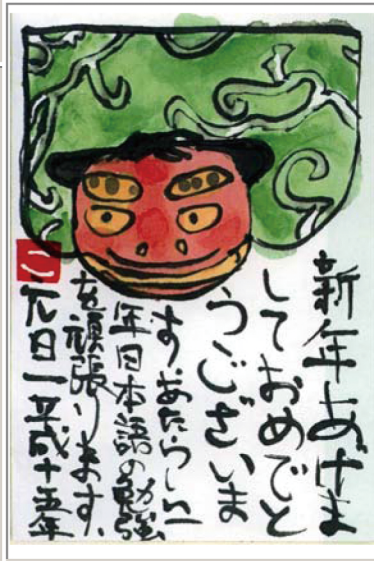 新年あけま
しておめでと
うございま
す。あたらしい一
年日本語の勉強
を頑張ります。
元日一平成十五年
こ